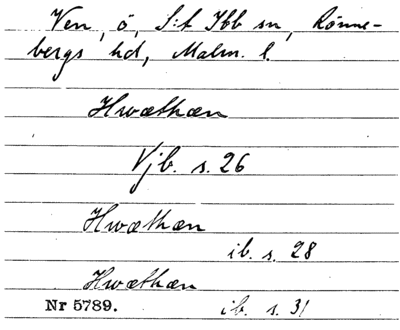 Ven, ö, S:t Ibb sn, Rönne-
bergs hd, Malm. l.
Hwæthæn
Vjb. s. 26
Hwæthæn
ib. s. 28
Hwæthæn
Nr 5789. ib. s. 31